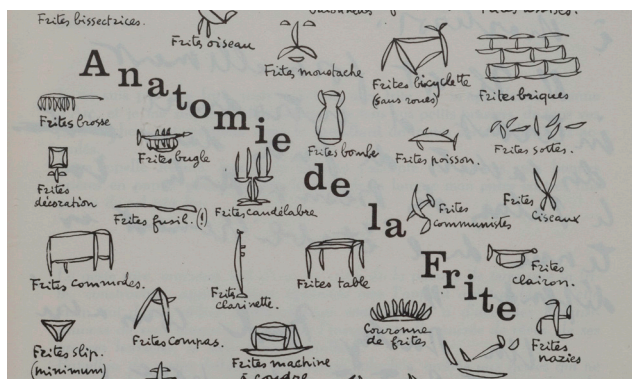 Frites bissectrices.
Frites oiseau
Frites moustache
Frites bicyclette
(sans roues)
Frites briques
Anatomie
de
la
Frite
Frites brosse
Frites bugle
Frites bombe
Frites poisson.
Frites sottes.
Frites
décoration
Frites fusil. (1)
Frites candélabre
Frites
communistes
Frites
Ciseaux
Frites commodes.
Frites
clarinette.
Frites table
Frites
clairon.
Frites slip.
(minimum)
Frites compas.
Frites machine
à coudre
Couronne
de frites
Frites
nazies